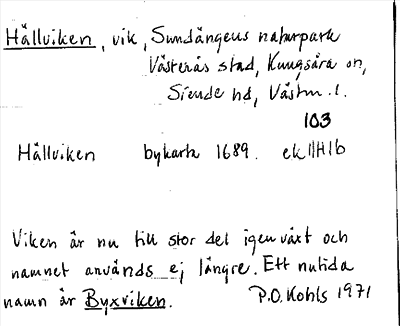 Hällviken, vik, Sundängens naturpark
Västerås stad, Kungsåra sn,
Siende hd, Västm. l.
103
Hällviken bykarta 1689. ek 11H1b
Viken är nu till stor del igenväxt och
namnet används ej längre. Ett nutida
namn är Byxviken. P.O. Kohls 1971